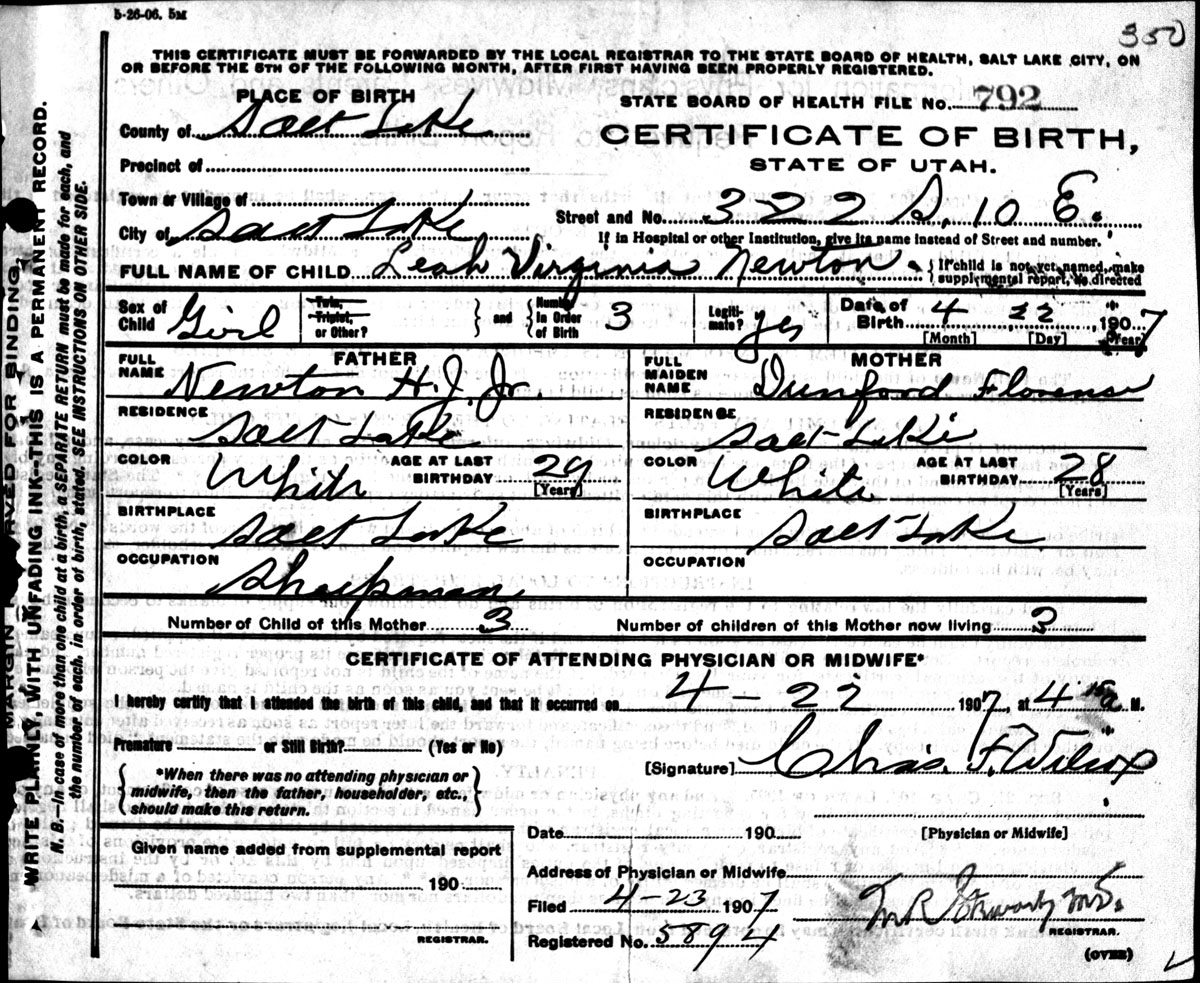 5-26-06. 5M
350
THIS CERTIFICATE MUST BE FORWARDED BY THE LOCAL REGISTRAR TO THE STATE BOARD OF HEALTH, SALT LAKE CITY, ON
OR BEFORE THE 5TH OF THE FOLLOWING MONTH, AFTER FIRST HAVING BEEN PROPERLY REGISTERED.
PLACE OF BIRTH
STATE BOARD OF HEALTH FILE No. 792
County of Salt Lake
CERTIFICATE OF BIRTH,
Precinct of
STATE OF UTAH.
Town or Village of
Street and No. 322 S. 10 E.
City of Salt Lake
If in Hospital or other Institution, give its name instead of Street and number.
FULL NAME OF CHILD Leah Virginia Newton. {If child is not yet named, make
supplemental report, as directed
Sex of Child Girl
Twin, Triplet, or Other?
} and {
Number in Order of Birth 3
Legitimate? yes
Date of Birth 4 22, 1907
[Month] [Day] [Year]
FATHER
FULL NAME Newton H. J. Jr.
MOTHER
FULL MAIDEN NAME Dunford Florens
RESIDENCE Salt Lake
RESIDENCE Salt Lake
COLOR White AGE AT LAST BIRTHDAY 29 [Years]
COLOR White AGE AT LAST BIRTHDAY 28 [Years]
BIRTHPLACE Salt Lake
BIRTHPLACE Salt Lake
OCCUPATION Sheepman
OCCUPATION
Number of Child of this Mother 3 Number of children of this Mother now living 3
CERTIFICATE OF ATTENDING PHYSICIAN OR MIDWIFE*
I hereby certify that I attended the birth of this child, and that it occurred on 4-22 1907, at 4 15 a M.
Premature or Still Birth? (Yes or No)
[Signature] Chas. F. Wilcox
{*When there was no attending physician or
midwife, then the father, householder, etc.,
should make this return.}
Date 190
[Physician or Midwife]
Given name added from supplemental report
190
REGISTRAR.
Address of Physician or Midwife
Filed 4-23 1907
M.D.
REGISTRAR.
Registered No. 5894
(OVER)
MARGIN RESERVED FOR BINDING.
WRITE PLAINLY, WITH UNFADING INK--THIS IS A PERMANENT RECORD.
N. B.—In case of more than one child at a birth, a SEPARATE RETURN must be made for each, and
the number of each, in order of birth, stated. SEE INSTRUCTIONS ON OTHER SIDE.